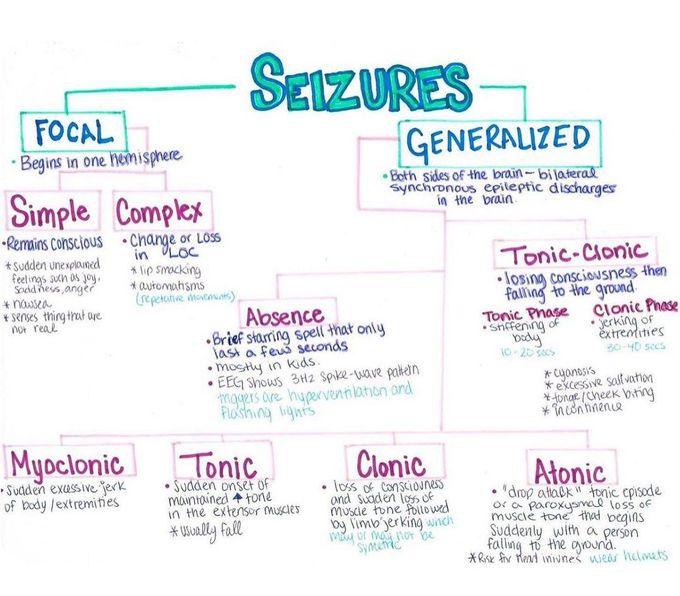 SEIZURES
FOCAL
• Begins in one hemisphere
Simple
• Remains conscious
* sudden unexplained
feelings such as joy,
saddness, anger
* nausea
* senses thing that are
not real
Complex
• Change or Loss
in LOC
* lip smacking
* automatisms
(repetative movements)
GENERALIZED
• Both sides of the brain – bilateral
synchronous epileptic discharges
in the brain.
Absence
• Brief starring spell that only
last a few seconds
• mostly in kids.
• EEG shows 3Hz spike-wave pattern
triggers are hyperventilation and
flashing lights
Tonic-Clonic
• losing consciousness then
falling to the ground.
Tonic Phase
• stiffening of
body
10-20 secs
Clonic Phase
• jerking of
extremities
30-40 secs
* cyanosis
* excessive salivation
* tonge/cheek biting
* incontinence
Myoclonic
• Sudden excessive jerk
of body/extremities
Tonic
• Sudden onset of
maintained ↑ tone
in the extensor muscles
* usually fall
Clonic
• loss of consciouness
and sudden loss of
muscle tone followed
by limb jerking which
may or may not be
symetric
Atonic
• "drop attack" tonic episode
or a paroxysmal loss of
muscle tone that begins
Suddenly with a person
falling to the ground.
* Risk for head injuries wear helmets